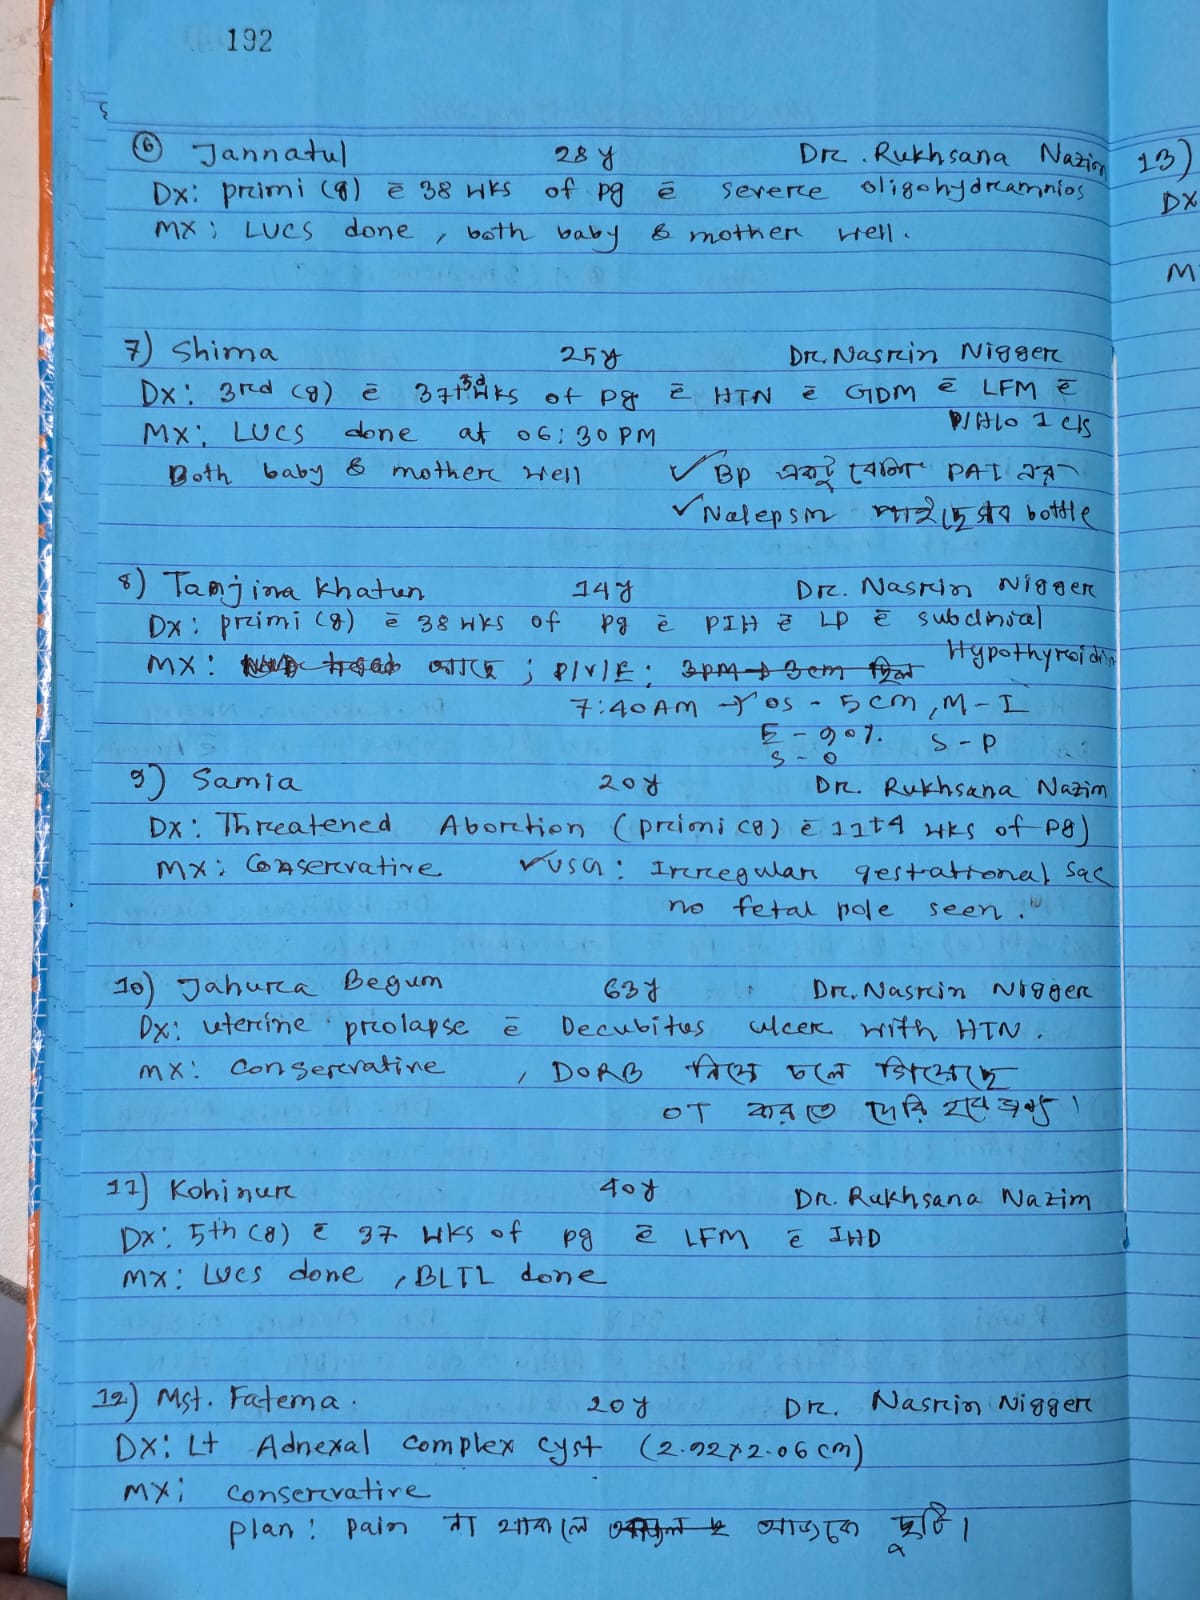 192
⑥ Jannatul 28y Dr. Rukhsana Nazim
Dx: primi (g) c̄ 38 wks of pg c̄ severe oligohydramnios
Mx: LUCS done, both baby & mother well.
7) Shima 25y Dr. Nasrin Nigger
Dx: 3rd (g) c̄ 37+3d wks of pg c̄ HTN c̄ GDM c̄ LFM c̄
P/H/o 1 c/s
Mx: LUCS done at 06:30 PM
Both baby & mother well ✓ BP একটু বেশি PAT এর
✓ Nalepsin পাইছে bottle
8) Tanjina Khatun 14y Dr. Nasrin Nigger
Dx: primi (g) c̄ 38 wks of pg c̄ PIH c̄ LP c̄ subclinical
Hypothyroidim
Mx: আছে; P/V/E: 3pm → 3cm ছিল
7:40 AM → os - 5 cm, M - I
E - 90%. S - P
S - 0
9) Samia 20y Dr. Rukhsana Nazim
Dx: Threatened Abortion (primi (g) c̄ 11+4 wks of pg)
Mx: Conservative ✓ USG: Irregular gestational sac
no fetal pole seen.
10) Jahura Begum 63y Dr. Nasrin Nigger
Dx: uterine prolapse c̄ Decubitus ulcer with HTN.
Mx: Conservative, DORB নিয়ে চলে গিয়েছে
OT করতে দেরি হবে জন্য।
11) Kohinur 40y Dr. Rukhsana Nazim
Dx: 5th (g) c̄ 37 wks of pg c̄ LFM c̄ IHD
Mx: LUCS done, BLTL done
12) Mst. Fatema. 20y Dr. Nasrin Nigger
Dx: Lt Adnexal complex cyst (2.92x2.06 cm)
Mx: conservative
plan: pain না থাকলে আজকে ছুটি।
13)
Dx
M